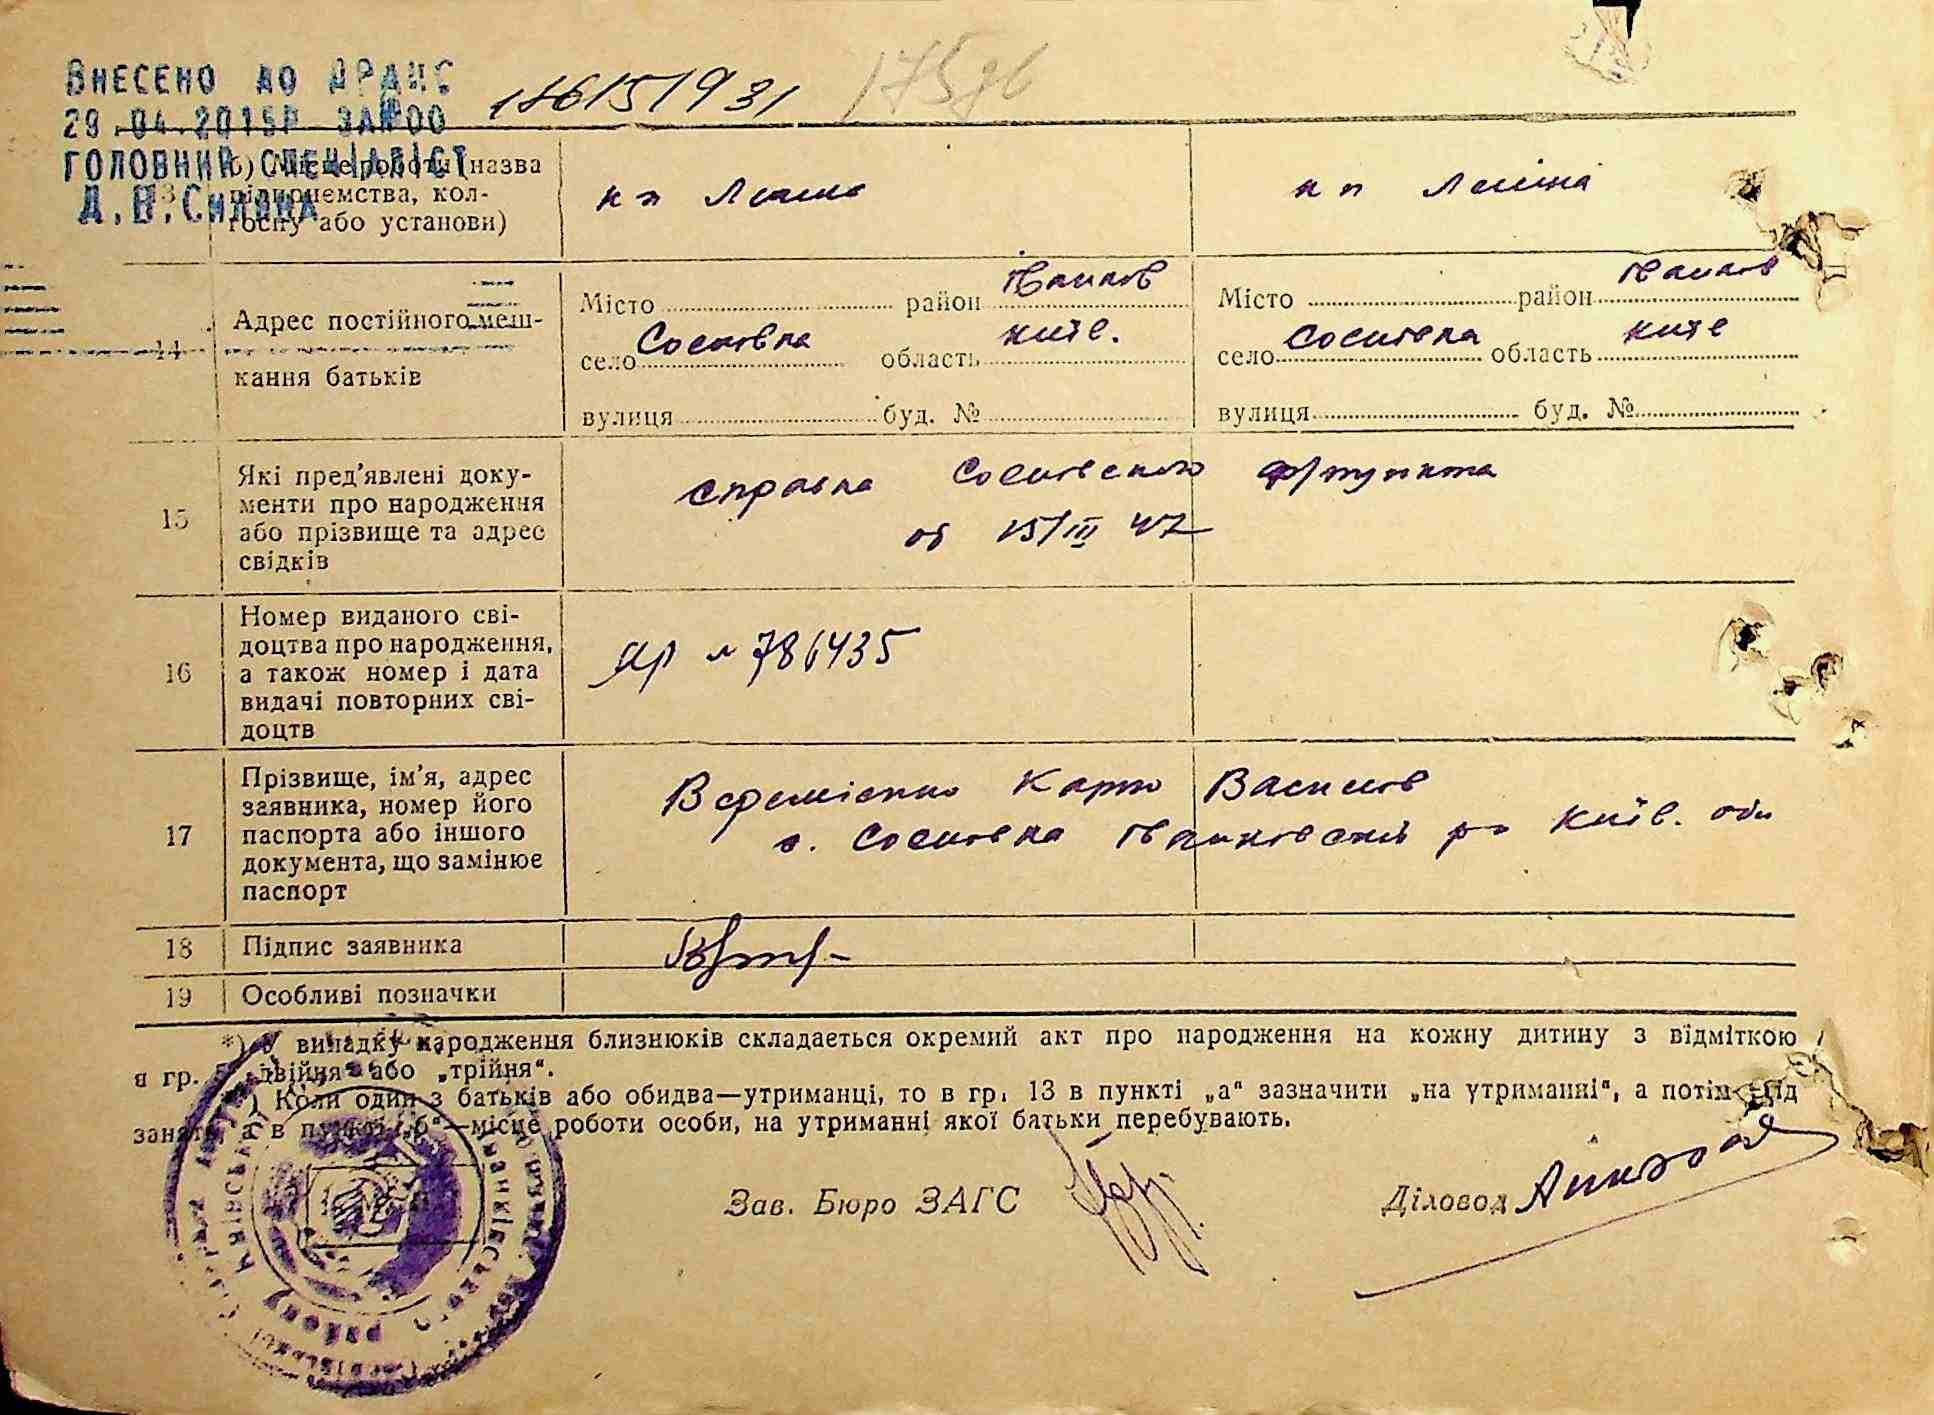 ВНЕСЕНО ДО ДРАЦС
29.04.2015Р ЗА№00
ГОЛОВНИЙ СПЕЦІАЛІСТ
Д.В.Силина
186151931 175дв
13 б) Місце роботи (назва підприємства, кол-
госпу або установи)
кп Леніна кп Леніна
14 Адрес постійного меш-
кання батьків
Місто район Іванков Місто район Іванков
село Сосновка область київ. село Сосновка область київ
вулиця буд. № вулиця буд. №
15 Які пред'явлені доку-
менти про народження
або прізвище та адрес
свідків
справка Сосновского ф/пункта
об 15/III 47
16 Номер виданого сві-
доцтва про народження,
а також номер і дата
видачі повторних сві-
доцтв
№ 786435
17 Прізвище, ім'я, адрес
заявника, номер його
паспорта або іншого
документа, що замінює
паспорт
Карпо Васильов
с. Сосновка Іванковский р-н Київ. обл
18 Підпис заявника
19 Особливі позначки
*) У випадку народження близнюків складається окремий акт про народження на кожну дитину з відміткою
в гр. 5 „двійня" або „трійня".
) Коли один з батьків або обидва—утриманці, то в гр. 13 в пункті „а" зазначити „на утриманні", а потім рід
занять, а в пункті „б"—місце роботи особи, на утриманні якої батьки перебувають.
Зав. Бюро ЗАГС Діловод